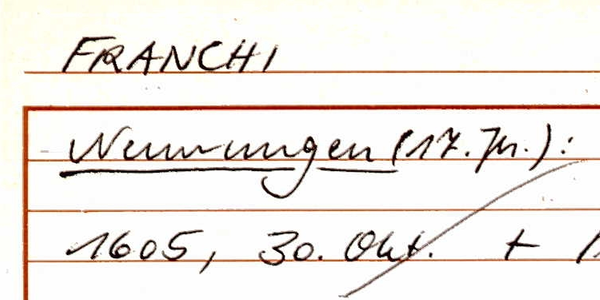 FRANCHI
Nennungen (17. Jh.):
1605, 30. Okt. +